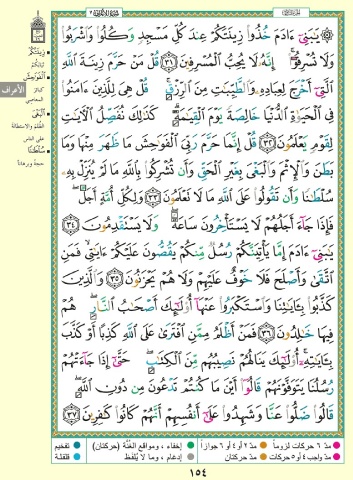 يَٰبَنِىٓ ءَادَمَ خُذُوا۟ زِينَتَكُمْ عِندَ كُلِّ مَسْجِدٍ وَكُلُوا۟ وَٱشْرَبُوا۟
وَلَا تُسْرِفُوٓا۟ إِنَّهُۥ لَا يُحِبُّ ٱلْمُسْرِفِينَ ٣١ قُلْ مَنْ حَرَّمَ زِينَةَ ٱللَّهِ
ٱلَّتِىٓ أَخْرَجَ لِعِبَادِهِۦ وَٱلطَّيِّبَٰتِ مِنَ ٱلرِّزْقِ قُلْ هِىَ لِلَّذِينَ ءَامَنُوا۟
فِى ٱلْحَيَوٰةِ ٱلدُّنْيَا خَالِصَةً يَوْمَ ٱلْقِيَٰمَةِ كَذَٰلِكَ نُفَصِّلُ ٱلْءَايَٰتِ
لِقَوْمٍ يَعْلَمُونَ ٣٢ قُلْ إِنَّمَا حَرَّمَ رَبِّىَ ٱلْفَوَٰحِشَ مَا ظَهَرَ مِنْهَا وَمَا
بَطَنَ وَٱلْإِثْمَ وَٱلْبَغْىَ بِغَيْرِ ٱلْحَقِّ وَأَن تُشْرِكُوا۟ بِٱللَّهِ مَا لَمْ يُنَزِّلْ بِهِۦ
سُلْطَٰنًا وَأَن تَقُولُوا۟ عَلَى ٱللَّهِ مَا لَا تَعْلَمُونَ ٣٣ وَلِكُلِّ أُمَّةٍ أَجَلٌ
فَإِذَا جَآءَ أَجَلُهُمْ لَا يَسْتَأْخِرُونَ سَاعَةً وَلَا يَسْتَقْدِمُونَ ٣٤
يَٰبَنِىٓ ءَادَمَ إِمَّا يَأْتِيَنَّكُمْ رُسُلٌ مِّنكُمْ يَقُصُّونَ عَلَيْكُمْ ءَايَٰتِى فَمَنِ
ٱتَّقَىٰ وَأَصْلَحَ فَلَا خَوْفٌ عَلَيْهِمْ وَلَا هُمْ يَحْزَنُونَ ٣٥ وَٱلَّذِينَ
كَذَّبُوا۟ بِـَٔايَٰتِنَا وَٱسْتَكْبَرُوا۟ عَنْهَآ أُو۟لَٰٓئِكَ أَصْحَٰبُ ٱلنَّارِ هُمْ
فِيهَا خَٰلِدُونَ ٣٦ فَمَنْ أَظْلَمُ مِمَّنِ ٱفْتَرَىٰ عَلَى ٱللَّهِ كَذِبًا أَوْ كَذَّبَ
بِـَٔايَٰتِهِۦٓ أُو۟لَٰٓئِكَ يَنَالُهُمْ نَصِيبُهُم مِّنَ ٱلْكِتَٰبِ حَتَّىٰٓ إِذَا جَآءَتْهُمْ
رُسُلُنَا يَتَوَفَّوْنَهُمْ قَالُوٓا۟ أَيْنَ مَا كُنتُمْ تَدْعُونَ مِن دُونِ ٱللَّهِ
قَالُوا۟ ضَلُّوا۟ عَنَّا وَشَهِدُوا۟ عَلَىٰٓ أَنفُسِهِمْ أَنَّهُمْ كَانُوا۟ كَٰفِرِينَ ٣٧
زِينَتَكُمْ
ثيابكم
الْفَوَاحِشَ
كبائر
المعاصي
الأعراف
الْبَغْيَ
الظلم والاستطالة
على الناس
سُلْطَانًا
حجة وبرهانا
مدّ ٦ حركات لزوماً مدّ ٢ أو ٤ أو ٦ جوازاً إخفاء، ومواقع الغُنَّة (حركتان) تفخيم
مدّ واجب ٤ أو ٥ حركات مدّ حركتان إدغام، وما لا يُلفَظ قلقلة
١٥٤